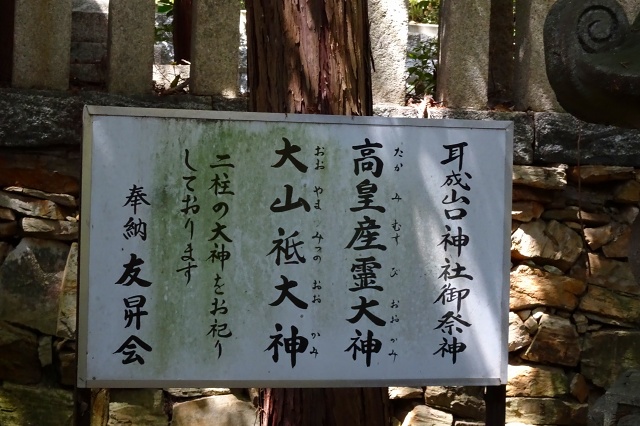 耳成山口神社御祭神
高皇産霊大神
たかみむすびおおかみ
大山祗大神
おおやまみつのおおかみ
二柱の大神をお祀り
しております
奉納 友昇会